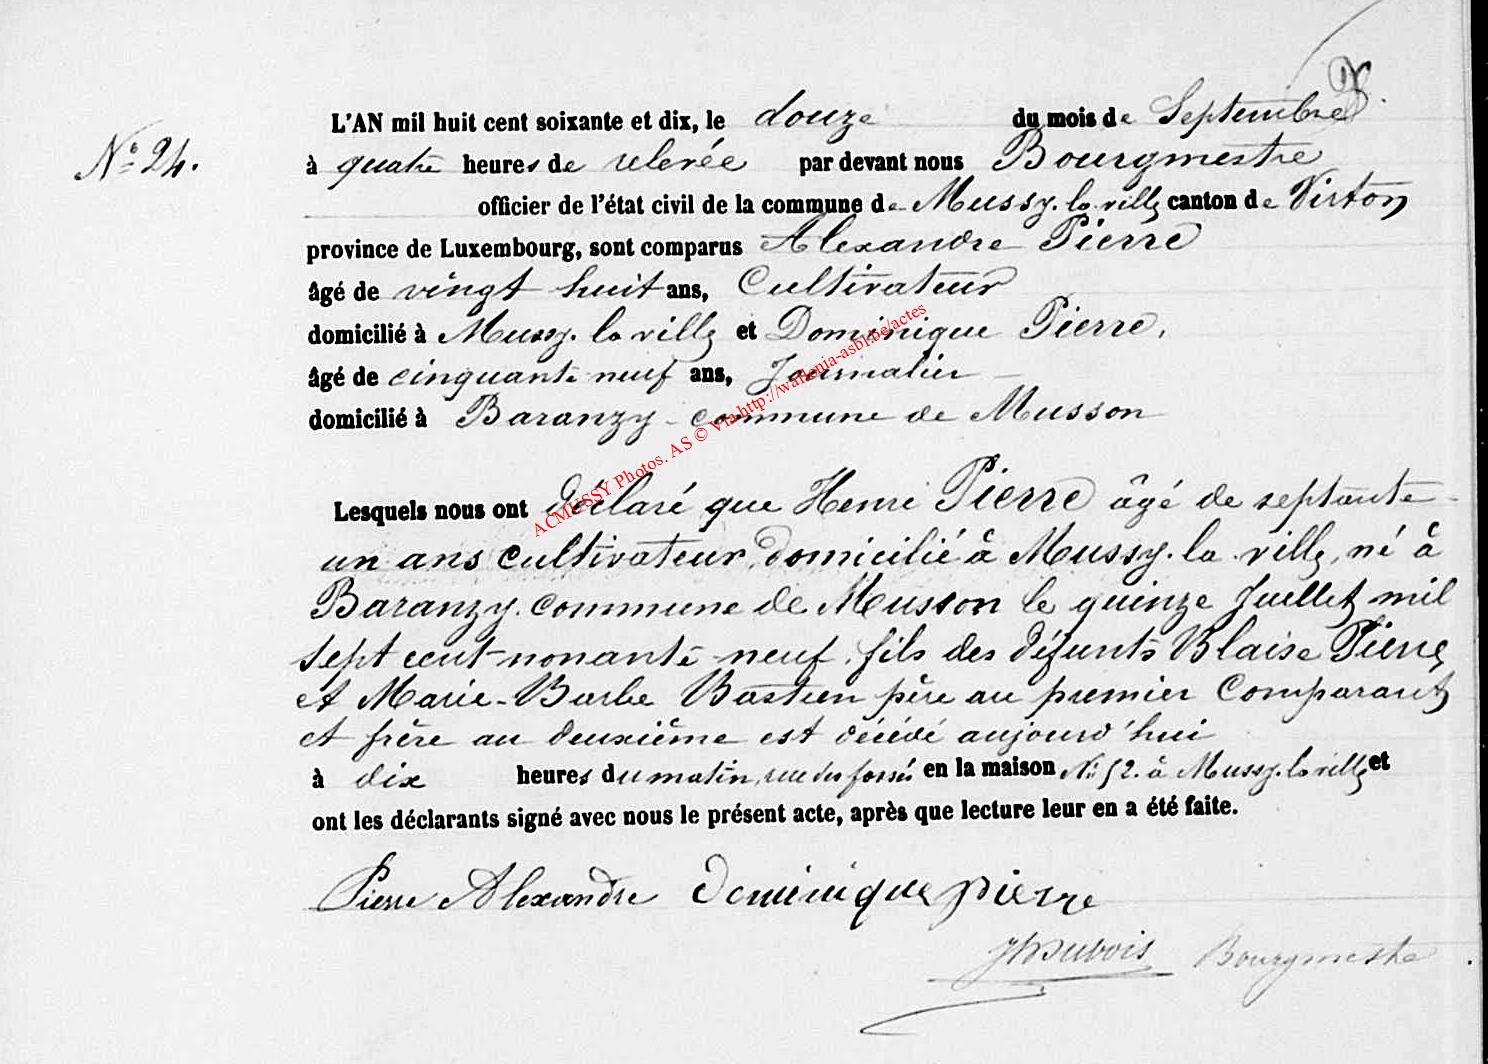 L'AN mil huit cent soixante et dix, le douze du mois de Septembre
N° 24.
à quatre heures de relevée par devant nous Bourgmestre
officier de l'état civil de la commune de Mussy-la-ville canton de Virton
province de Luxembourg, sont comparus Alexandre Pierre
âgé de vingt huit ans, Cultivateur
domicilié à Mussy-la-ville et Dominique Pierre,
âgé de cinquante neuf ans, Journalier
domicilié à Baranzy - commune de Musson
ACMUSSY Photos. AS © Via http://wallonia-asbl.be/actes
Lesquels nous ont déclaré que Henri Pierre âgé de septante-
un ans cultivateur, domicilié à Mussy-la-ville, né à
Baranzy, commune de Musson le quinze Juillet mil
sept cent-nonante-neuf, fils des défunts Blaise Pierre
et Marie-Barbe Bastien père au premier Comparant
et frère au deuxième est décédé aujourd'hui
à dix heures du matin, rue des fossés en la maison N° 52. à Mussy-la-ville et
ont les déclarants signé avec nous le présent acte, après que lecture leur en a été faite.
Pierre Alexandre dominique pierre
JhDubois Bourgmestre